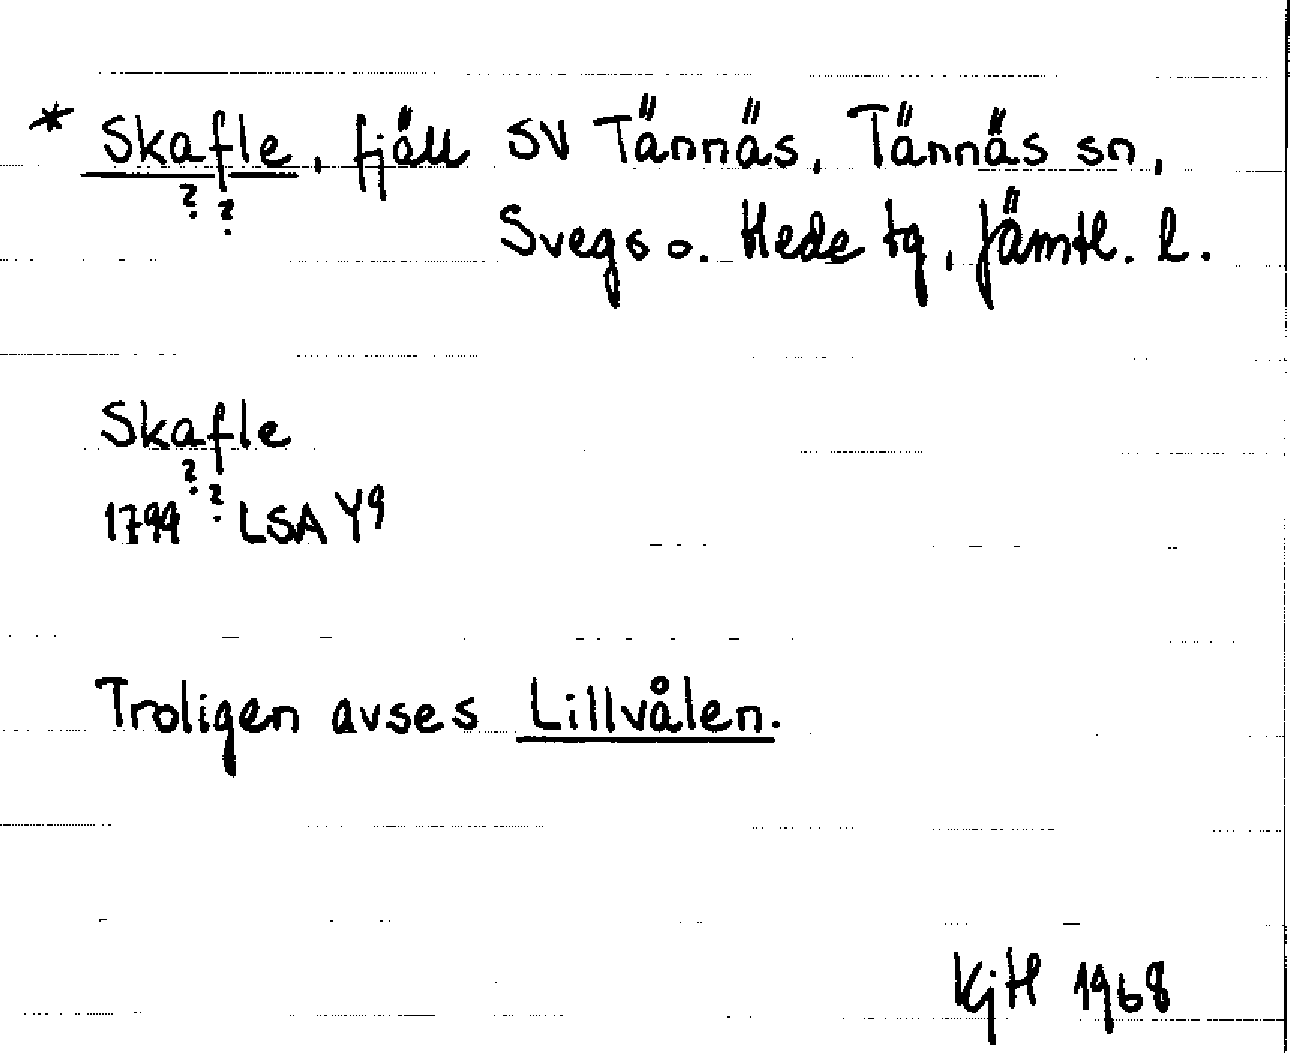 * Skafle, fjäll SV Tännäs, Tännäs sn,
? ?
Svegs o. Hede tg, Jämtl. l.
Skafle
? ?
1799 LSA Y9
Troligen avses Lillvålen.
KjH 1968